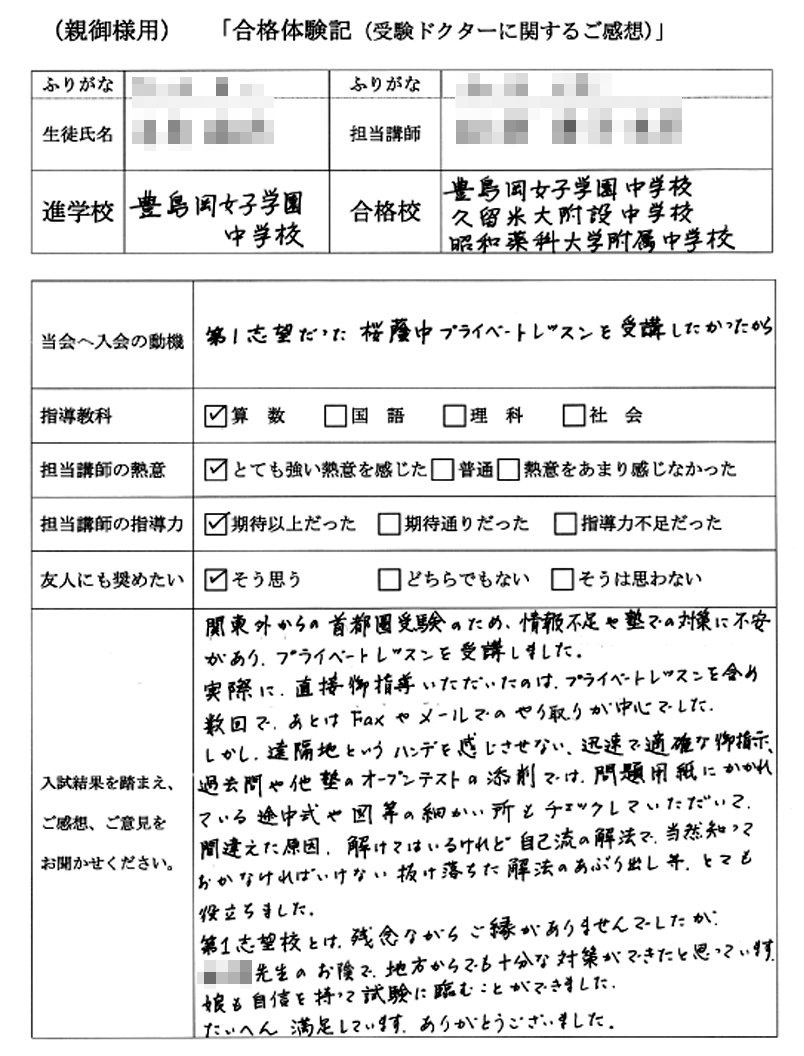 （親御様用）　「合格体験記（受験ドクターに関するご感想）」
ふりがな　ふりがな
生徒氏名　担当講師
進学校　豊島岡女子学園　合格校　豊島岡女子学園中学校
中学校　久留米大附設中学校
昭和薬科大学附属中学校
当会へ入会の動機　第1志望だった桜蔭中プライベートレッスンを受講したかったから
指導教科　☑算　数　□国　語　□理　科　□社　会
担当講師の熱意　☑とても強い熱意を感じた□普通□熱意をあまり感じなかった
担当講師の指導力　☑期待以上だった　□期待通りだった　□指導力不足だった
友人にも奨めたい　☑そう思う　□どちらでもない　□そうは思わない
入試結果を踏まえ、
ご感想、ご意見を
お聞かせください。
関東外からの首都圏受験のため、情報不足や塾での対策に不安
があり、プライベートレッスンを受講しました。
実際に、直接御指導いただいたのは、プライベートレッスンを含め
数回で、あとはFaxやメールでのやり取りが中心でした。
しかし、遠隔地というハンデを感じさせない、迅速で適確な御指示、
過去問や他塾のオープンテストの添削では、問題用紙にかかれ
ている途中式や図等の細かい所もチェックしていただいて、
間違えた原因、解けてはいるけれど自己流の解法で、当然知って
おかなければいけない抜け落ちた解法のあぶり出し等、とても
役立ちました。
第1志望校とは、残念ながらご縁がありませんでしたが、
先生のお陰で、地方からでも十分な対策ができたと思っています。
娘も自信を持って試験に臨むことができました。
たいへん満足しています。ありがとうございました。